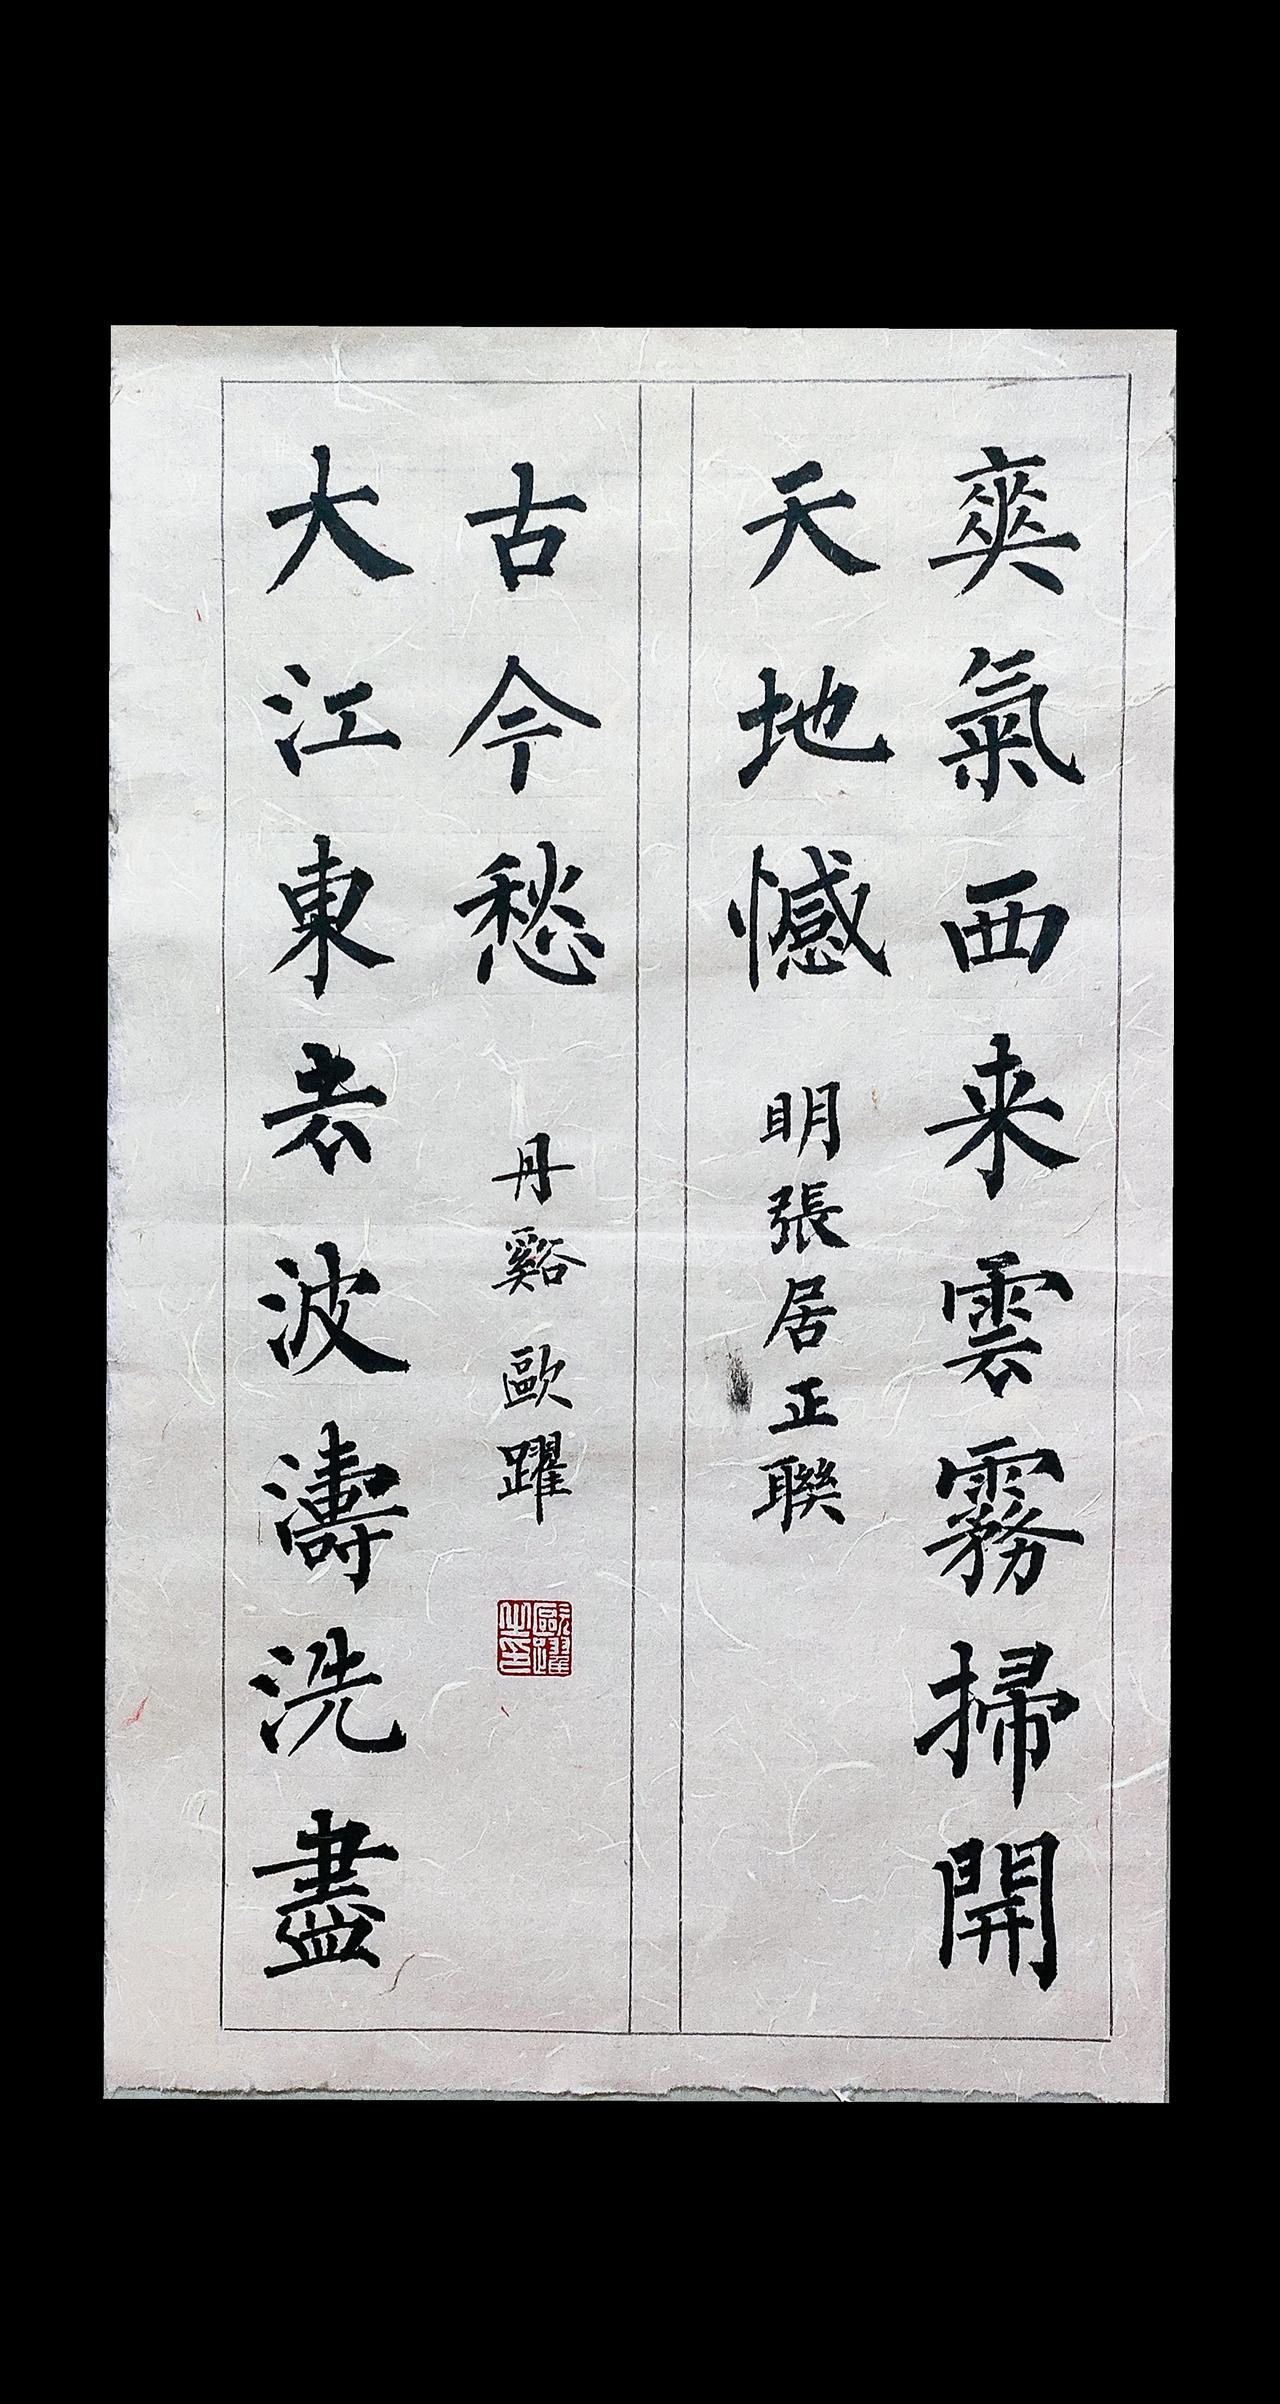 爽氣西来雲霧掃開
天地憾
明張居正聯
大江東去波濤洗盡
古今愁
丹谿歐躍
歐躍之印